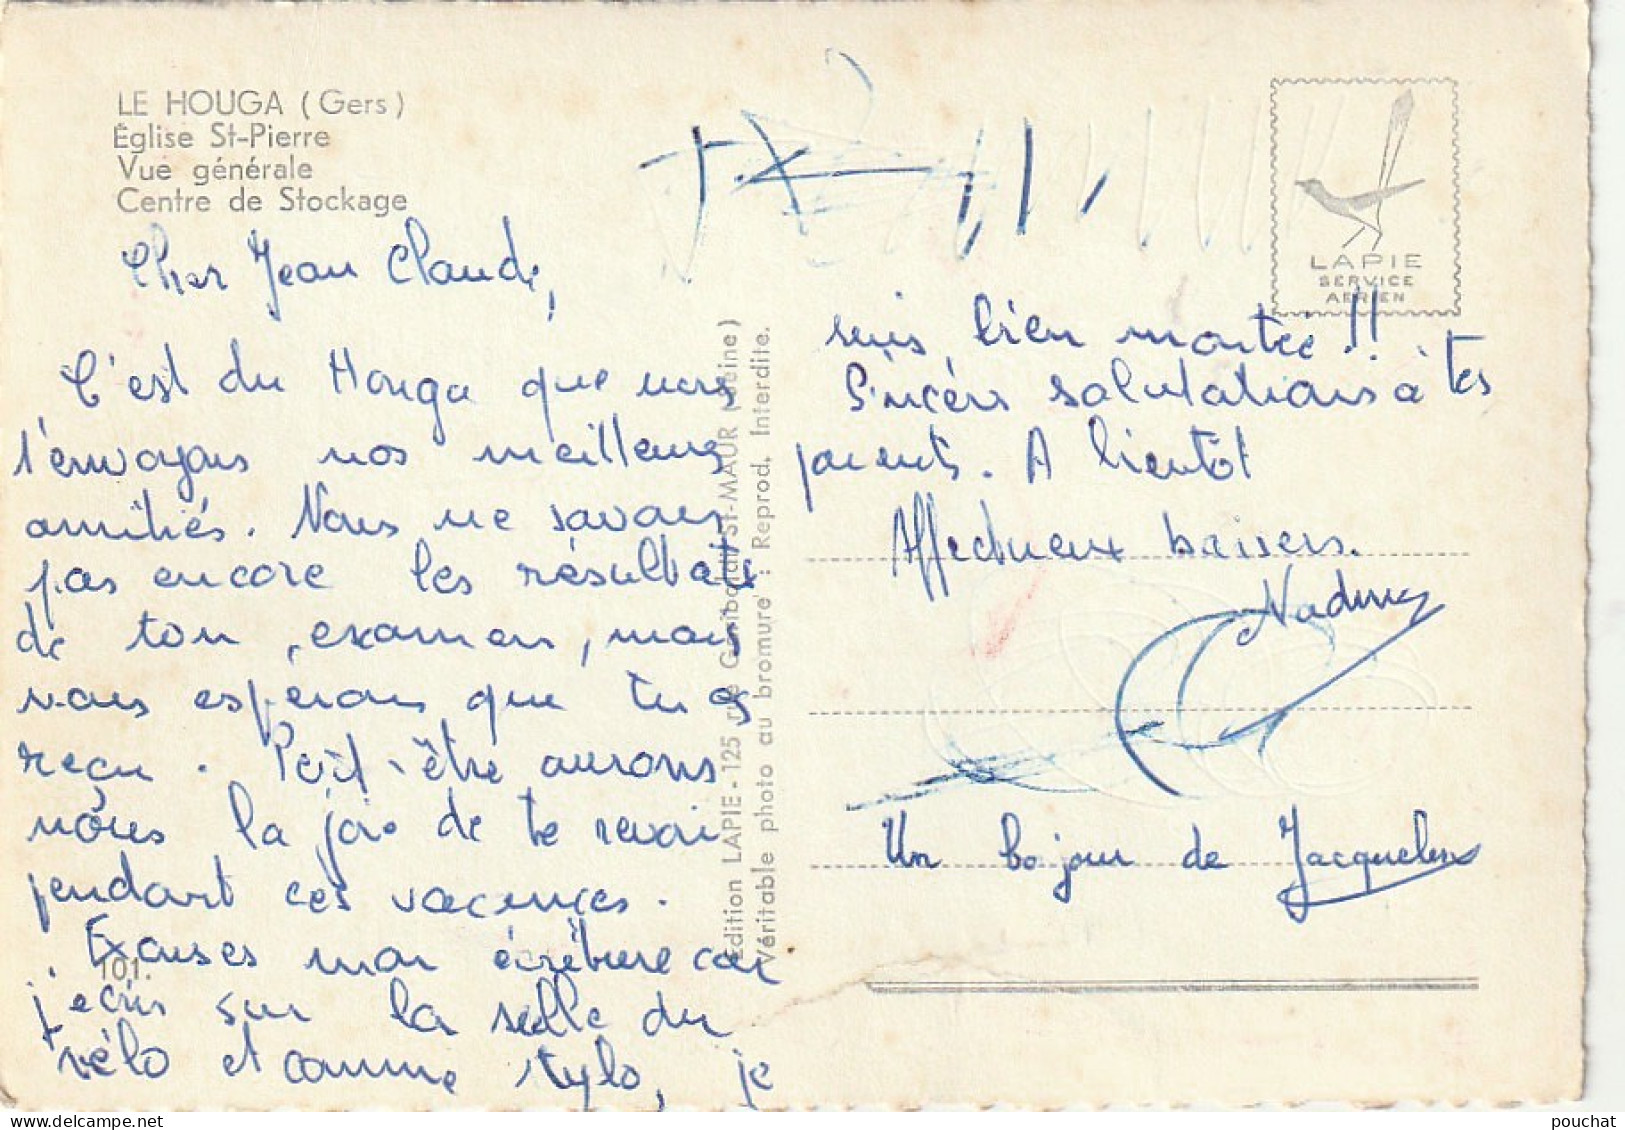 LE HOUGA (Gers)
Église St-Pierre
Vue générale
Centre de Stockage
Cher Jean Claude,
C'est du Houga que nous
t'envoyons nos meilleures
amitiés. Nous ne savons
pas encore les résultats
de ton examen, mais
nous espérons que tu as
reçu. Peut-être aurons
nous la joie de te revoir
pendant ces vacances.
Excuses mon écriture car
j'ecris sur la selle du
vélo et comme stylo, je
101.
Edition LAPIE - 125 rue Garibaldi St-MAUR (Seine)
Véritable photo au bromure : Reprod. Interdite.
LAPIE
SERVICE
AERIEN
suis bien montée !!
Sincères salutations à tes
parents. A bientôt
Affectueux baisers.
Nadine
Un bojour de Jacqueline
pouchat